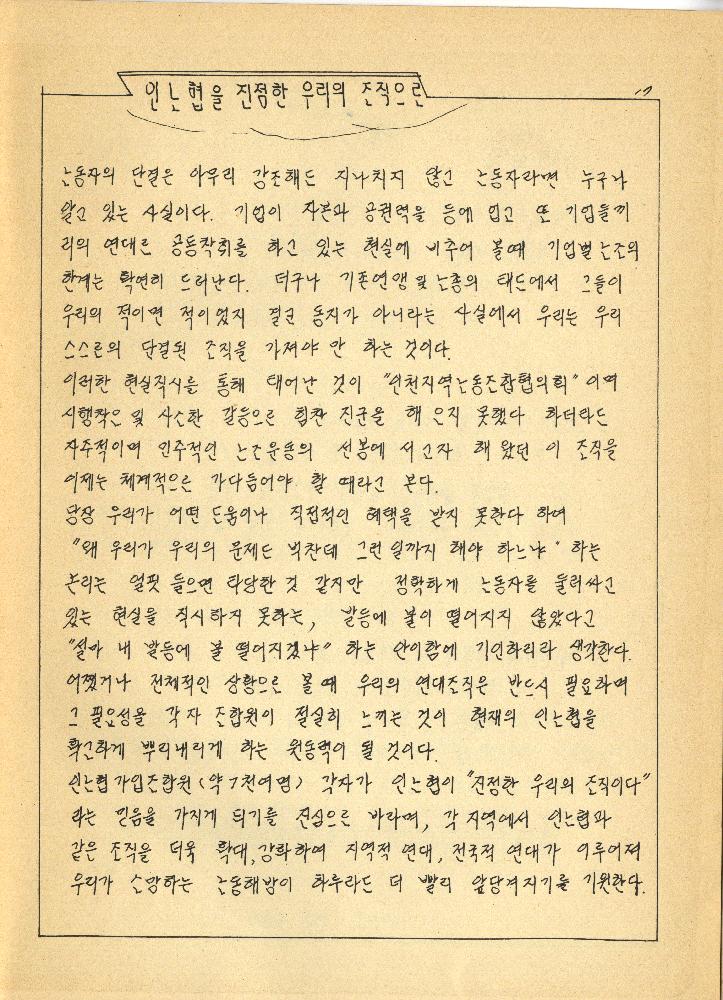 인노협을 진정한 우리의 조직으로
17
노동자의 단결은 아무리 강조해도 지나치지 않고 노동자라면 누구나
알고 있는 사실이다. 기업이 자본과 공권력을 등에 업고 또 기업들끼
리의 연대로 공동착취를 하고 있는 현실에 비추어 볼때 기업별 노조의
한계는 확연히 드러난다. 더구나 기존연맹 및 노총의 태도에서 그들이
우리의 적이면 적이었지 결코 동지가 아니라는 사실에서 우리는 우리
스스로의 단결된 조직을 가져야 만 하는 것이다.
이러한 현실직시를 통해 태어난 것이 "인천지역노동조합협의회" 이며
시행착오 및 사소한 갈등으로 힘찬 진군을 해 오지 못했다 하더라도
자주적이며 민주적인 노조운동의 선봉에 서고자 해 왔던 이 조직을
이제는 체계적으로 가다듬어야 할 때라고 본다.
당장 우리가 어떤 도움이나 직접적인 혜택을 받지 못한다 하여
"왜 우리가 우리의 문제도 벅찬데 그런 일까지 해야 하느냐" 하는
논리는 얼핏 들으면 타당한 것 같지만 정확하게 노동자를 둘러싸고
있는 현실을 직시하지 못하는, 발등에 불이 떨어지지 않았다고
"설마 내 발등에 불 떨어지겠냐" 하는 안이함에 기인하리라 생각한다.
어쨌거나 전체적인 상황으로 볼 때 우리의 연대조직은 반드시 필요하며
그 필요성을 각자 조합원이 절실히 느끼는 것이 현재의 인노협을
확고하게 뿌리내리게 하는 원동력이 될 것이다.
인노협 가입조합원 (약 7천여명) 각자가 인노협이 "진정한 우리의 조직이다"
라는 믿음을 가지게 되기를 진심으로 바라며, 각 지역에서 인노협과
같은 조직을 더욱 확대, 강화하여 지역적 연대, 전국적 연대가 이루어져
우리가 소망하는 노동해방이 하루라도 더 빨리 앞당겨지기를 기원한다.